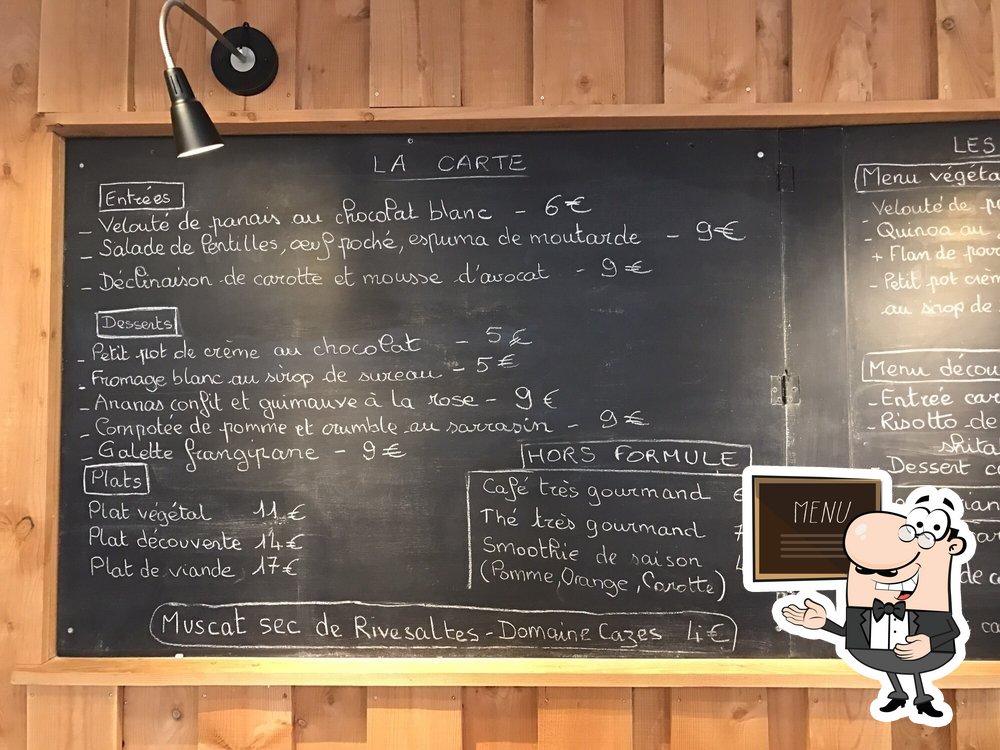 LA CARTE
Entrées
- Velouté de panais au chocolat blanc - 6€
- Salade de lentilles, œuf poché, espuma de moutarde - 9€
- Déclinaison de carotte et mousse d'avocat - 9€
Desserts
- Petit pot de crème au chocolat - 5€
- Fromage blanc au sirop de sureau - 5€
- Ananas confit et guimauve à la rose - 9€
- Compotée de pomme et crumble au sarrasin - 9€
- Galette frangipane - 9€
Plats
Plat végétal 11€
Plat découverte 14€
Plat de viande 17€
HORS FORMULE
Café très gourmand
Thé très gourmand
Smoothie de saison
(Pomme, Orange, Carotte)
Muscat sec de Rivesaltes - Domaine Cazes 4€
LES
Menu végéta
Velouté de
- Quinoa au
+ Flan de
- Petit pot crèm
au sirop de
Menu décou
- Entrée
- Risotto de
shita
Dessert
MENU